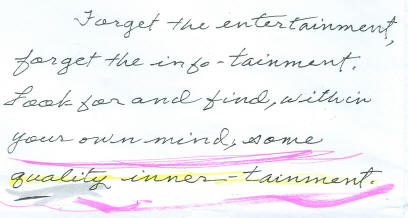 Forget the entertainment,
forget the info-tainment.
Look for and find, within
your own mind, some
quality inner-tainment.